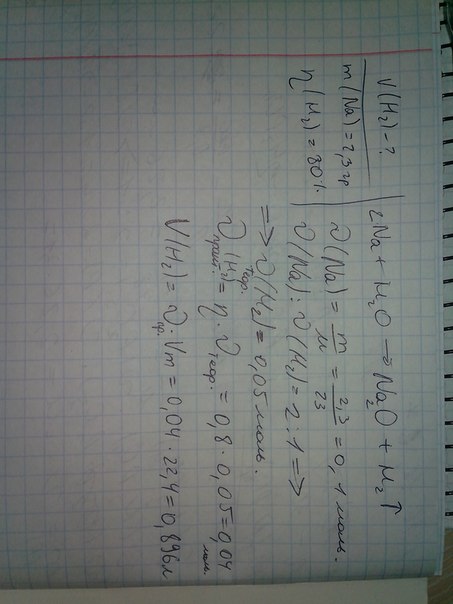 V(H₂) - ?
m(Na) = 2,3 гр
η(H₂) = 80%
2Na + H₂O → Na₂O + H₂↑
ν(Na) = m/M = 2,3/23 = 0,1 моль.
ν(Na) : ν(H₂) = 2 : 1 =>
=> ν теор. (H₂) = 0,05 моль.
ν практ. (H₂) = η · ν теор. = 0,8 · 0,05 = 0,04 моль.
V(H₂) = ν пр. · Vm = 0,04 · 22,4 = 0,896 л